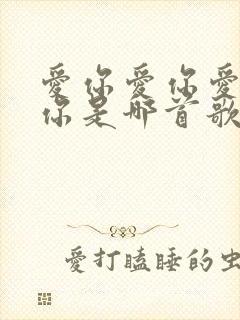 愛你愛你愛
你是哪首歌
愛打瞌睡的虫